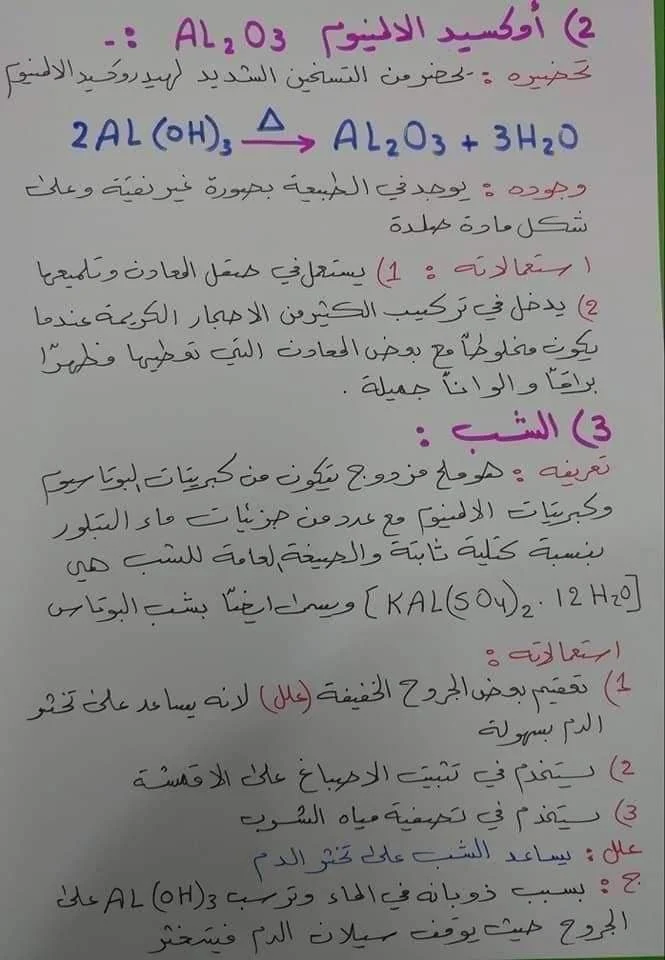 2) أوكسيد الالمنيوم AL2O3 :-
تحضيره :- يحضر من التسخين الشديد لهيدروكسيد الالمنيوم
2AL(OH)3 Δ→ AL2O3 + 3H2O
وجوده : يوجد في الطبيعة بصورة غير نقية وعلى
شكل مادة صلدة
استعمالاته : 1) يستعمل في صقل المعادن وتلميعها
2) يدخل في تركيب الكثير من الاحجار الكريمة عندما
يكون مخلوطاً مع بعض المعادن التي تعطيها مظهراً
براقاً والواناً جميلة .
3) الشب :
تعريفه : هو ملح مزدوج يتكون من كبريتات البوتاسيوم
وكبريتات الالمنيوم مع عدد من جزيئات ماء التبلور
بنسبة كتلية ثابتة والصيغة العامة للشب هي
[KAL(SO4)2 . 12H2O] ويسمى ايضاً بشب البوتاس
استعمالاته :
1) تعقيم بعض الجروح الخفيفة (علل) لانه يساعد على تخثر
الدم بسهولة
2) يستخدم في تثبيت الاصباغ على الاقمشة
3) يستخدم في تصفية مياه الشرب
علل : يساعد الشب على تخثر الدم
ج : بسبب ذوبانه في الماء وترسب AL(OH)3 على
الجروح حيث يوقف سيلان الدم فيتخثر